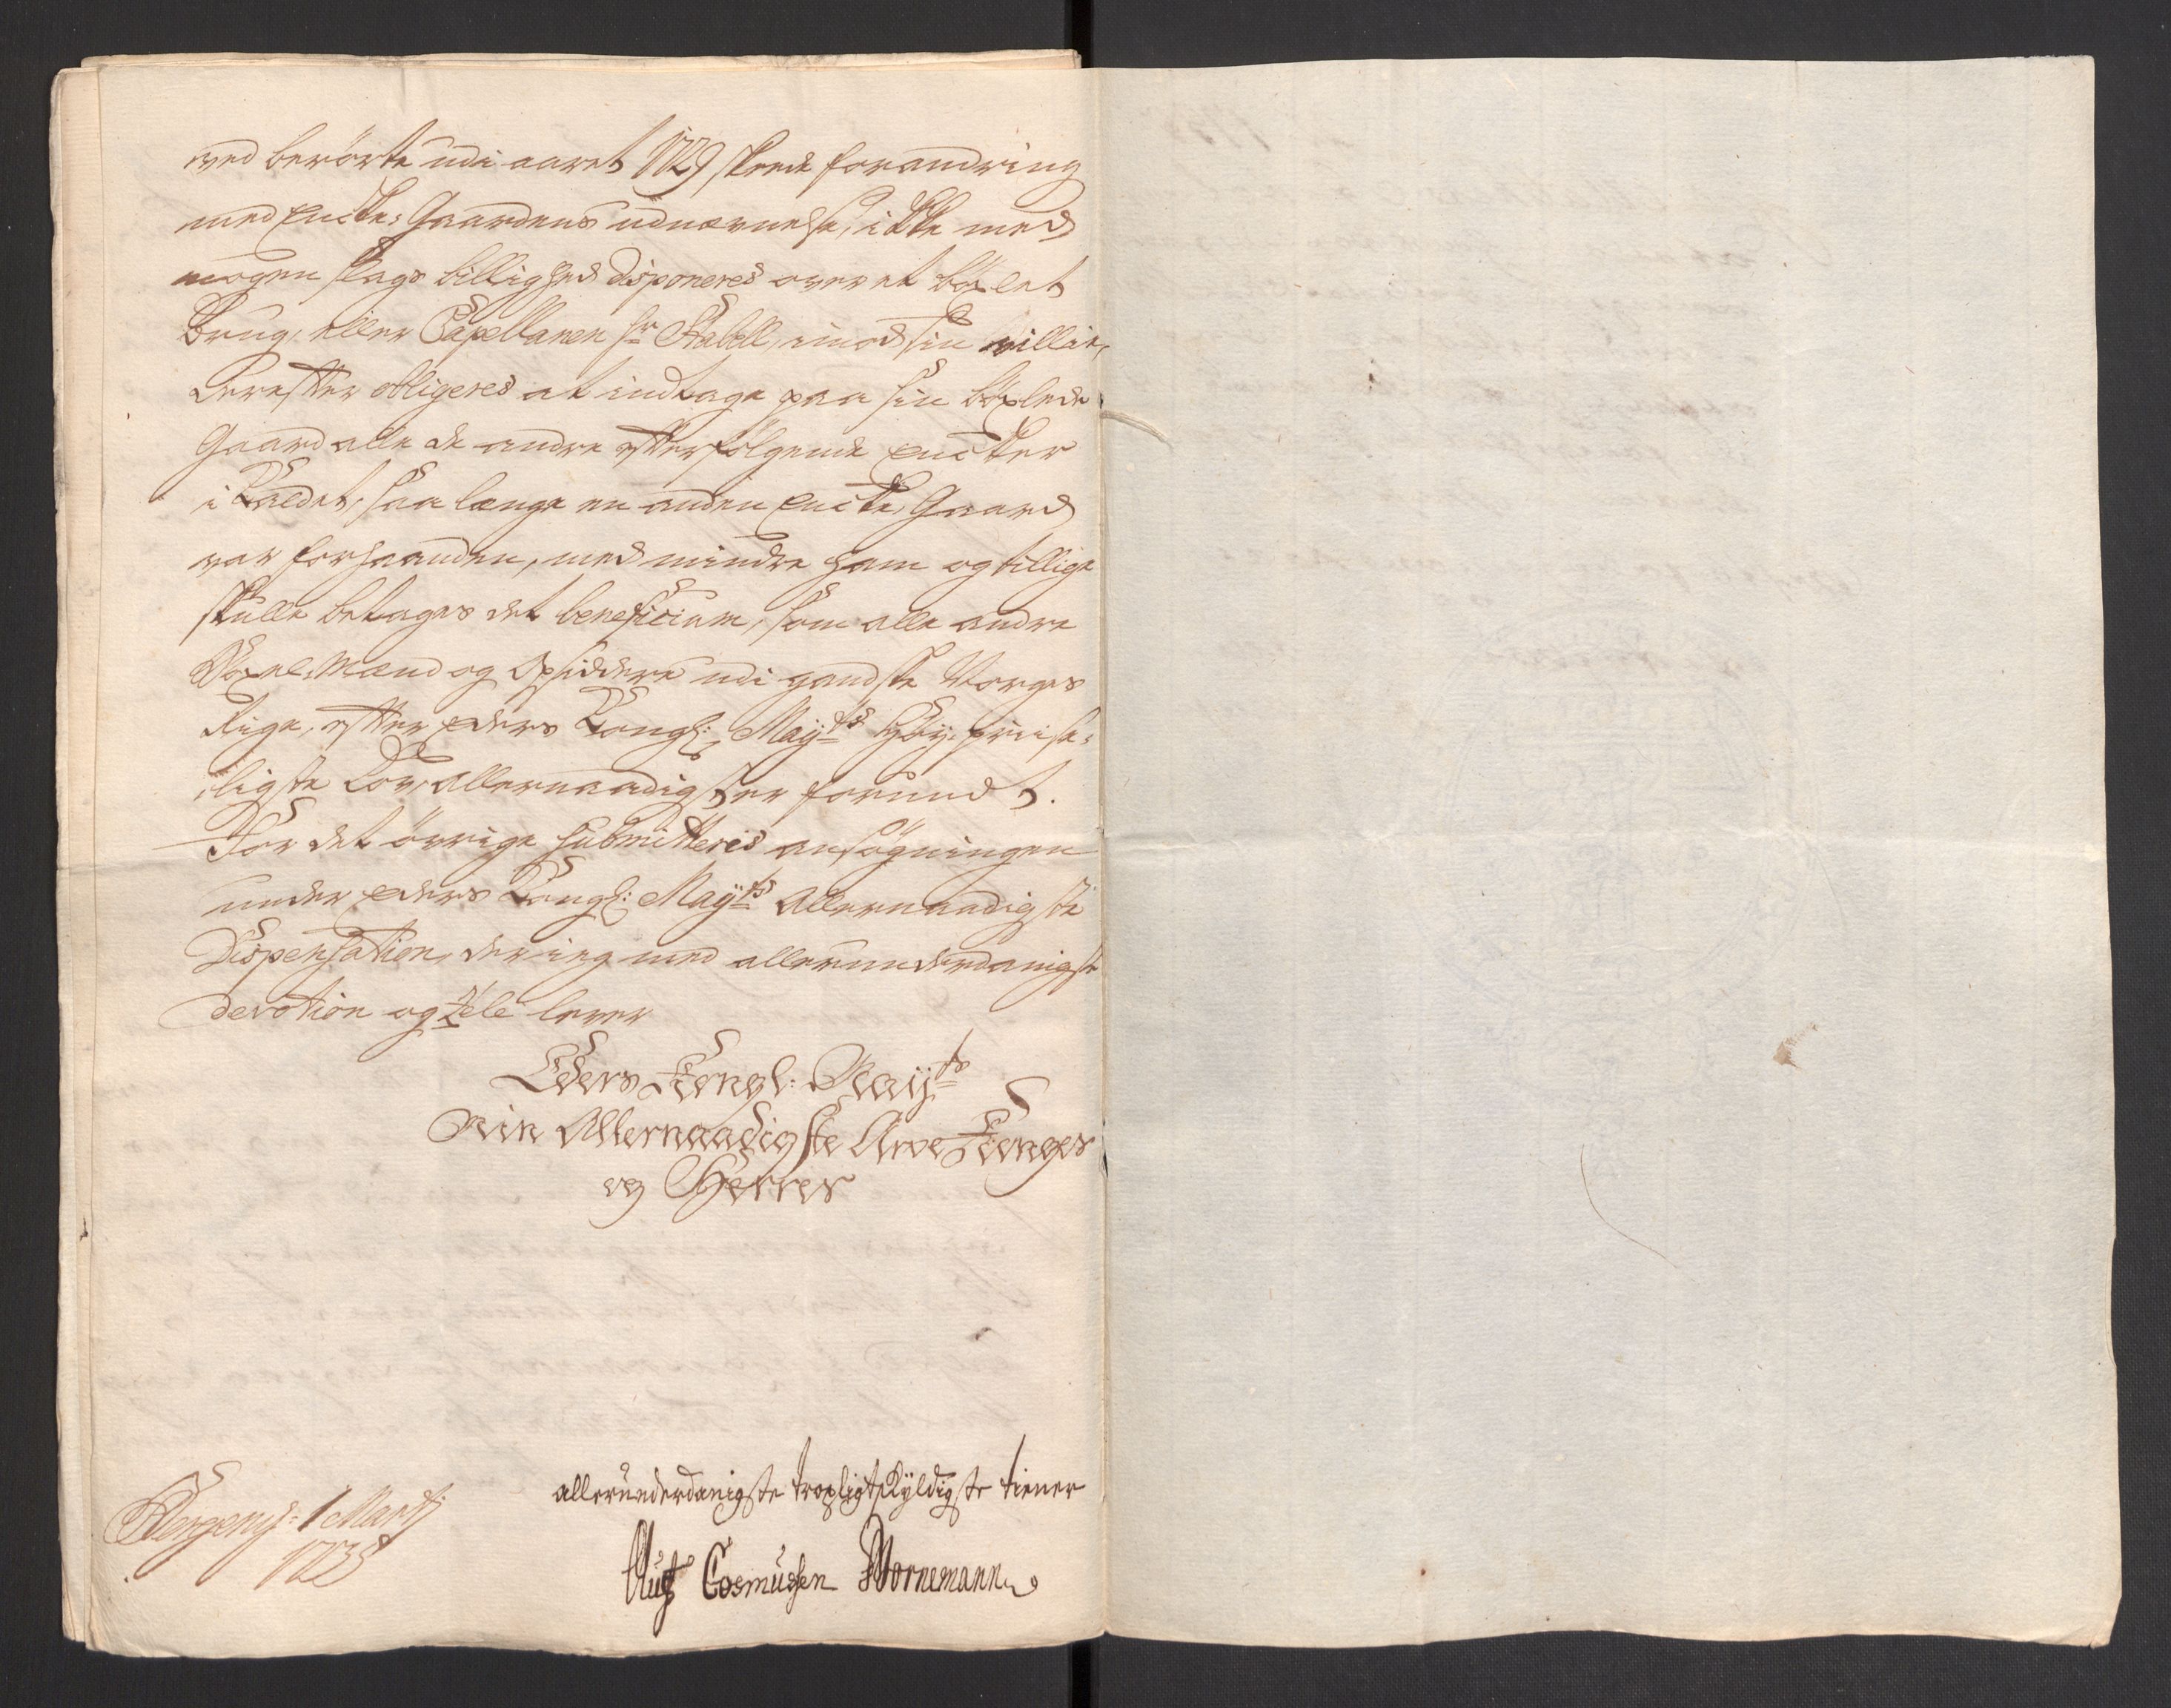 ved berörte udi aaret 1729 skeede forandring
med Encke-Gaardens udnævnelse, ikke med
nogen slags billighed disponeres over et böxlet
Brug, eller Capellanen Hr Stabell, imod sin villie,
derefter obligeres at indtage paa sin böxlede
Gaard alle de andre efterfölgende Encker
i Kaldet, saa længe en anden Encke Gaard
var forhaanden, med mindre ham og tillige
skulle betages det beneficium, som alle andre
Böxel-Mænd og Opsiddere udi gandske Norges
Rige, efter Eders Kongl: Mayts höy-priise-
ligste Lov, Allernaadigst er forundt.
For det övrige submitteres ansögningen
under Eders Kongl: Mayts Allernaadigste
Dispensation, der ieg med allerunderdanigste
devotion og Zele lever
Eders Kongl: Mayts
Min Allernaadigste Arve Konges
og Herres
allerunderdanigste tropligtskyldigste tiener
Bergen d: 1 Martj
1738
Oluf Cosmussen Bornemann